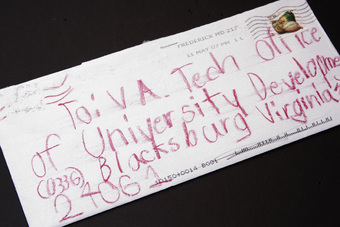 FREDERICK MD 217
11 MAY 07 PM 1 L
To: VA. Tech office
of University Developme
(0336) Blacksburg Virginia
24061